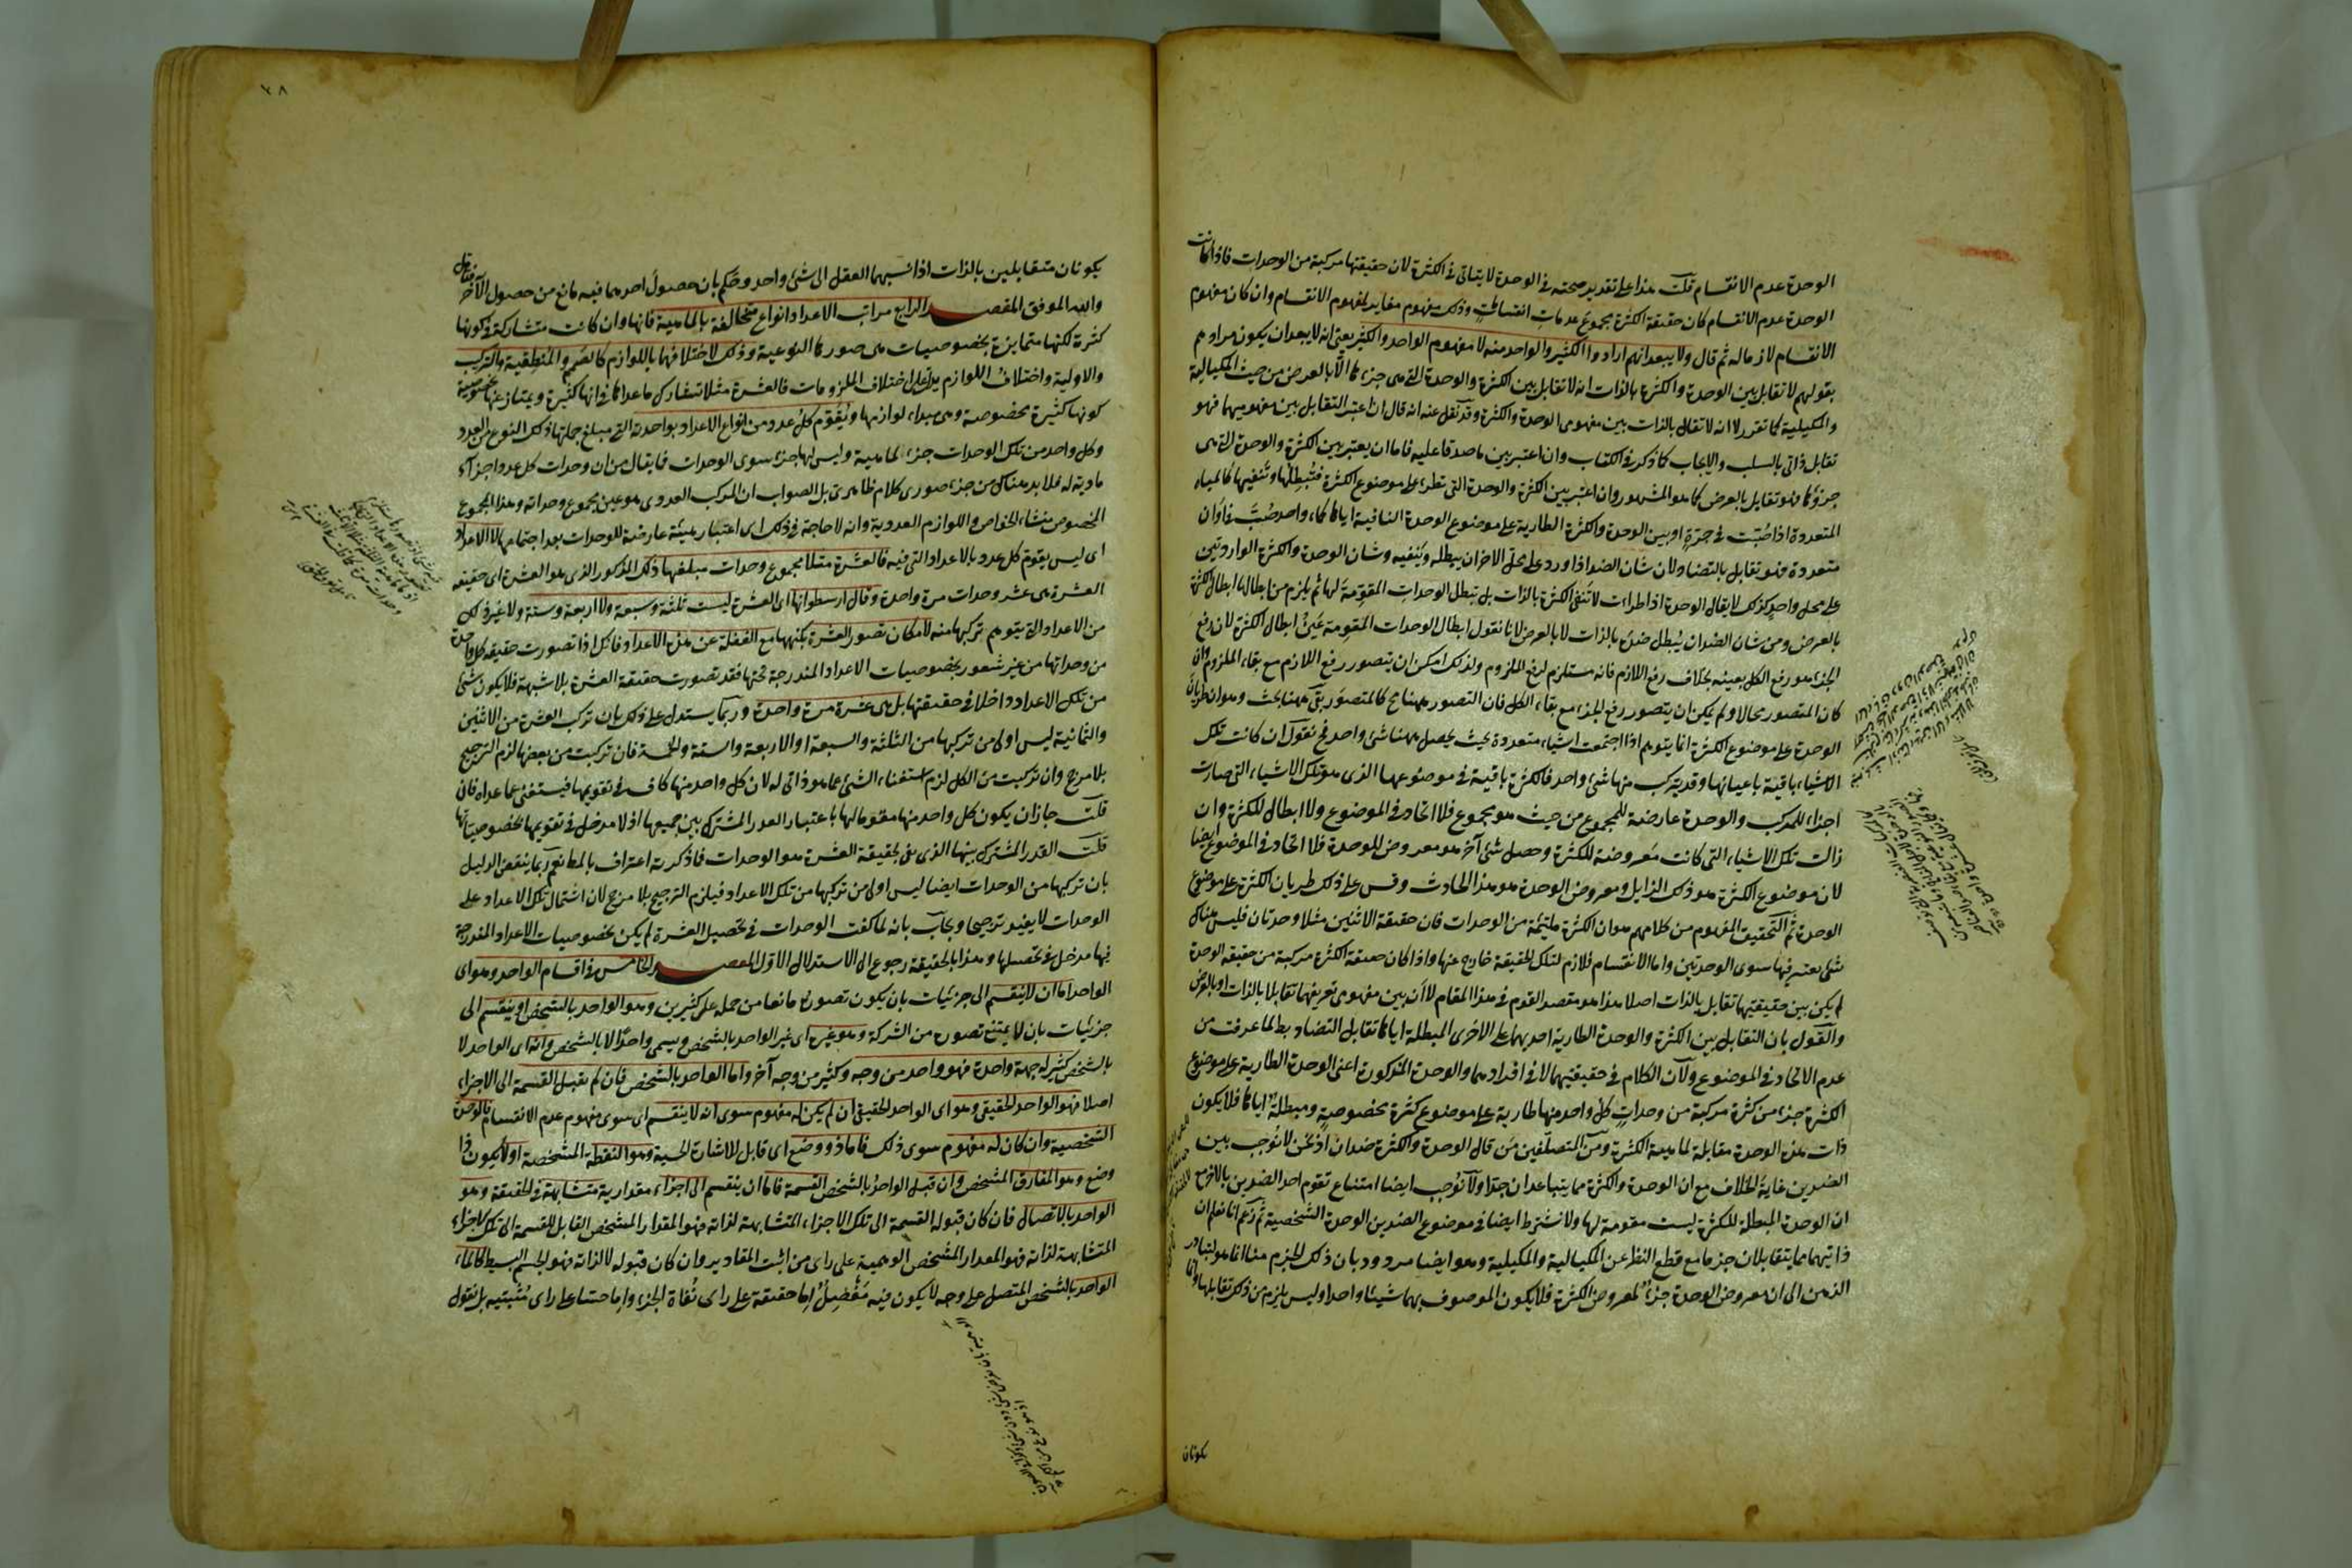 الوحدة عدم الانقسام قلت هذا على تقدير صحته في الوحدة لا يتأتى في الكثرة لان حقيقتها مركبة من الوحدات فاذا كانت
الوحدة عدم الانقسام كان حقيقة الكثرة مجموع عدمات انقسامات وذلك مفهوم مغاير لمفهوم الانقسام وان كان مفهوم
الانقسام لازما له ثم قال ولا يبعد انهم ارادوا الكثير والواحد منه لا مفهوم الواحد والكثير يعني انه لا يبعد ان يكون مرادهم
بقولهم لا تقابل بين الوحدة والكثرة بالذات انه لا تقابل بين الكثرة والوحدة التي هي جزءها الا بالعرض من حيث المكيالية
والمكيلية كما تقرر لا انه لا تقابل بالذات بين مفهومي الوحدة والكثرة وقد نقل عنه انه قال ان اعتبر التقابل بين مفهوميهما فهو
تقابل ذاتي بالسلب والايجاب كما ذكر في الكتاب وان اعتبر بين ما صدقا عليه فاما ان يعتبر بين الكثرة والوحدة التي هي
جزؤها فهو تقابل بالعرض كما هو المشهور وان اعتبر بين الكثرة والوحدة التي تطرء على موضوع الكثرة فتبطلها وتنفيها كالمياه
المتعددة اذا صبت في جرة او بين الوحدة والكثرة الطارية على موضوع الوحدة النافية اياها كماء واحد صب في اوان
متعددة فهو تقابل بالتضاد لان شان الضد اذا ورد على محل الاخر ان يبطله وينفيه وشان الوحدة والكثرة الواردتين
على محل واحد كذلك لا يقال الوحدة اذا طرات لا تنفي الكثرة بالذات بل تبطل الوحدات المقومة لها ثم يلزم من ابطالها ابطال الكثرة
بالعرض ومن شان الضد ان يبطل ضده بالذات لا بالعرض لانا نقول ابطال الوحدات المقومة عين ابطال الكثرة لان رفع
الجزء هو رفع الكل بعينه بخلاف رفع اللازم فانه مستلزم لرفع الملزوم ولذلك امكن ان يتصور رفع اللازم مع بقاء الملزوم وان
كان المتصور محالا ولم يمكن ان يتصور رفع الجزء مع بقاء الكل فان التصور ههنا مح كالمتصور بقي ههنا بحث وهو ان طريان
الوحدة على موضوع الكثرة انما يتوهم اذا اجتمعت اشياء متعددة بحيث يحصل ههنا شئ واحد فح نقول ان كانت تلك
الاشياء باقية باعيانها وقد يتركب منها شئ واحد فالكثرة باقية في موضوعها الذي هو تلك الاشياء التي صارت
اجزاء للمركب والوحدة عارضة للمجموع من حيث هو مجموع فلا اتحاد في الموضوع ولا ابطال للكثرة وان
زالت تلك الاشياء التي كانت معروضة للكثرة وحصل شئ آخر هو معروض للوحدة فلا اتحاد في الموضوع ايضا
لان موضوع الكثرة هو ذلك الزايل ومعروض الوحدة هو هذا الحادث وقس على ذلك طريان الكثرة على موضوع
الوحدة ثم التحقيق المفهوم من كلامهم هو ان الكثرة ملتئمة من الوحدات فان حقيقة الاثنين مثلا وحدتان فليس هناك
شئ يعتبر فيها سوى الوحدتين واما الانقسام فلازم لتلك الحقيقة خارج عنها واذا كان حقيقة الكثرة مركبة من حقيقة الوحدة
لم يكن بين حقيقتيهما تقابل بالذات اصلا هذا هو مقصد القوم في هذا المقام لا ان بين مفهومي تعريفهما تقابلا بالذات او بالعرض
والقول بان التقابل بين الكثرة والوحدة الطارية احديهما على الاخرى المبطلة اياها تقابل التضاد بط لما عرفت من
عدم الاتحاد في الموضوع ولان الكلام في حقيقتيهما لا في افرادهما والوحدة المذكورة اعني الوحدة الطارية على موضوع
الكثرة جزء من كثرة مركبة من وحدات كل واحد منها طارية على موضوع كثرة مخصوصة ومبطلة اياها فلا يكون
ذات هذه الوحدة مقابلة لماهية الكثرة ومن المتصلفين من قال الوحدة والكثرة ضدان اذ نحن لا نوجب بين
الضدين غاية الخلاف مع ان الوحدة والكثرة مما يتباعدان جدا ولا نوجب ايضا امتناع تقوم احد الضدين بالاخر مع
ان الوحدة المبطلة للكثرة ليست مقومة لها ولا نشترط ايضا في موضوع الضدين الوحدة الشخصية ثم زعم انا نعلم ان
ذاتيهما مما يتقابلان جزما مع قطع النظر عن المكيالية والمكيلية وهو ايضا مردود بان ذلك الجزم منا انما هو لتبادر
الذهن الى ان معروض الوحدة جزء لمعروض الكثرة فلا يكون الموصوف بهما شيئا واحدا وليس يلزم من ذكر تقابلهما وانما
يكونان
٢٨
يكونان متقابلين بالذات اذا نسبهما العقل الى شئ واحد وحكم بان حصول احدهما فيه مانع من حصول الآخر فتامل
والله الموفق المقصد الرابع مراتب الاعداد انواع متخالفة بالماهية فانها وان كانت متشاركة في كونها
كثرة لكنها متمايزة بخصوصيات هي صورها النوعية وذلك لاختلافها باللوازم كالصمم والمنطقية والتركيب
والاولية واختلاف اللوازم يدل على اختلاف الملزومات فالعشرة مثلا تشارك ما عداها في انها كثيرة ويمتاز عنها بخصوصية
كونها كثيرة مخصوصة وهي مبداء لوازمها ويقوم كل عدد من انواع الاعداد بواحدته التي مبلغ جملتها ذلك النوع من العدد
وكل واحد من تلك الوحدات جزء لماهيته وليس لها جزء سوى الوحدات فما يقال من ان وحدات كل عدد اجزاء
مادية له فلا بد هناك من جزء صوري كلام ظاهري بل الصواب ان المركب العددي هو عين مجموع وحداته وهذا المجموع
المخصوص منشاء الخواص واللوازم العددية وانه لا حاجة في ذلك الى اعتبار هيئة عارضة للوحدات بعد اجتماعها لا الاعداد
اي ليس يقوم كل عدد بالاعداد التي فيه فالعشرة مثلا مجموع وحدات مبلغها ذلك المذكور الذي هو العشرة اي حقيقة
العشرة هي عشر وحدات مرة واحدة وقال ارسطو انها اي العشرة ليست ثلثة وسبعة ولا اربعة وستة ولا غير ذلك
من الاعداد التي يتوهم تركبها منه لامكان تصور العشرة بكنهها مع الغفلة عن هذه الاعداد فانك اذا تصورت حقيقة كل واحدة
من وحداتها من غير شعور بخصوصيات الاعداد المندرجة تحتها فقد تصورت حقيقة العشرة بلا شبهة فلا يكون شئ
من تلك الاعداد داخلا في حقيقتها بل هي عشرة مرة واحدة وربما يستدل على ذلك بان تركب العشرة من الاثنين
والثمانية ليس اولى من تركبها من الثلثة والسبعة او الاربعة والستة والخمسة فان تركبت من بعضها لزم الترجيح
بلا مرجح وان تركبت من الكل لزم استغناء الشئ عما هو ذاتي له لان كل واحد منها كاف في تقويمها فيستغني عما عداه فان
قلت جاز ان يكون كل واحد منها مقوما لها باعتبار القدر المشترك بين جميعها اذ لا مدخل في تقويمها لخصوصياتها
قلت القدر المشترك بينها الذي يفي بحقيقة العشرة هو الوحدات فما ذكرته اعتراف بالمط نعم ربما ينقض الدليل
بان تركبها من الوحدات ايضا ليس اولى من تركبها من تلك الاعداد فيلزم الترجيح بلا مرجح لان اشتمال تلك الاعداد على
الوحدات لا يفيد ترجيحا ويجاب بانه لما كفت الوحدات في تحصيل العشرة لم يكن لخصوصيات الاعداد المندرجة
فيها مدخل في تحصيلها وهذا بالحقيقة رجوع الى الاستدلال الاول المقصد الخامس في اقسام الواحد وهو اي
الواحد اما ان لا ينقسم الى جزئيات بان يكون تصوره مانعا من حمله على كثيرين وهو الواحد بالشخص او ينقسم الى
جزئيات بان لا يمتنع تصوره من الشركة وهو غيره اي غير الواحد بالشخص ويسمى واحدا لا بالشخص وانه اي الواحد لا
بالشخص كثير له جهة واحدة فهو واحد من وجه وكثير من وجه آخر واما الواحد بالشخص فان لم يقبل القسمة الى الاجزاء
اصلا فهو الواحد الحقيقي وهو اي الواحد الحقيقي ان لم يكن له مفهوم سوى انه لا ينقسم اي سوى مفهوم عدم الانقسام فالوحدة
الشخصية وان كان له مفهوم سوى ذلك فاما ذو وضع اي قابل للاشارة الحسية وهو النقطة المشخصة او لا يكون ذا
وضع وهو المفارق المشخص وان قبل الواحد بالشخص القسمة فاما ان ينقسم الى اجزاء مقدارية متشابهة في الحقيقة وهو
الواحد بالاتصال فان كان قبوله القسمة الى تلك الاجزاء المتشابهة لذاته فهو المقدار المشخص القابل للقسمة الى تلك الاجزاء
المتشابهة لذاته فهو المقدار المشخص الوهمية على راي من اثبت المقادير وان كان قبوله لا لذاته فهو الجسم البسيط كالماء
الواحد بالشخص المتصل على وجه لا يكون فيه مفصل اما حقيقة على راي نفاة الجزء واما حسا على راي مثبتيه بل نقول